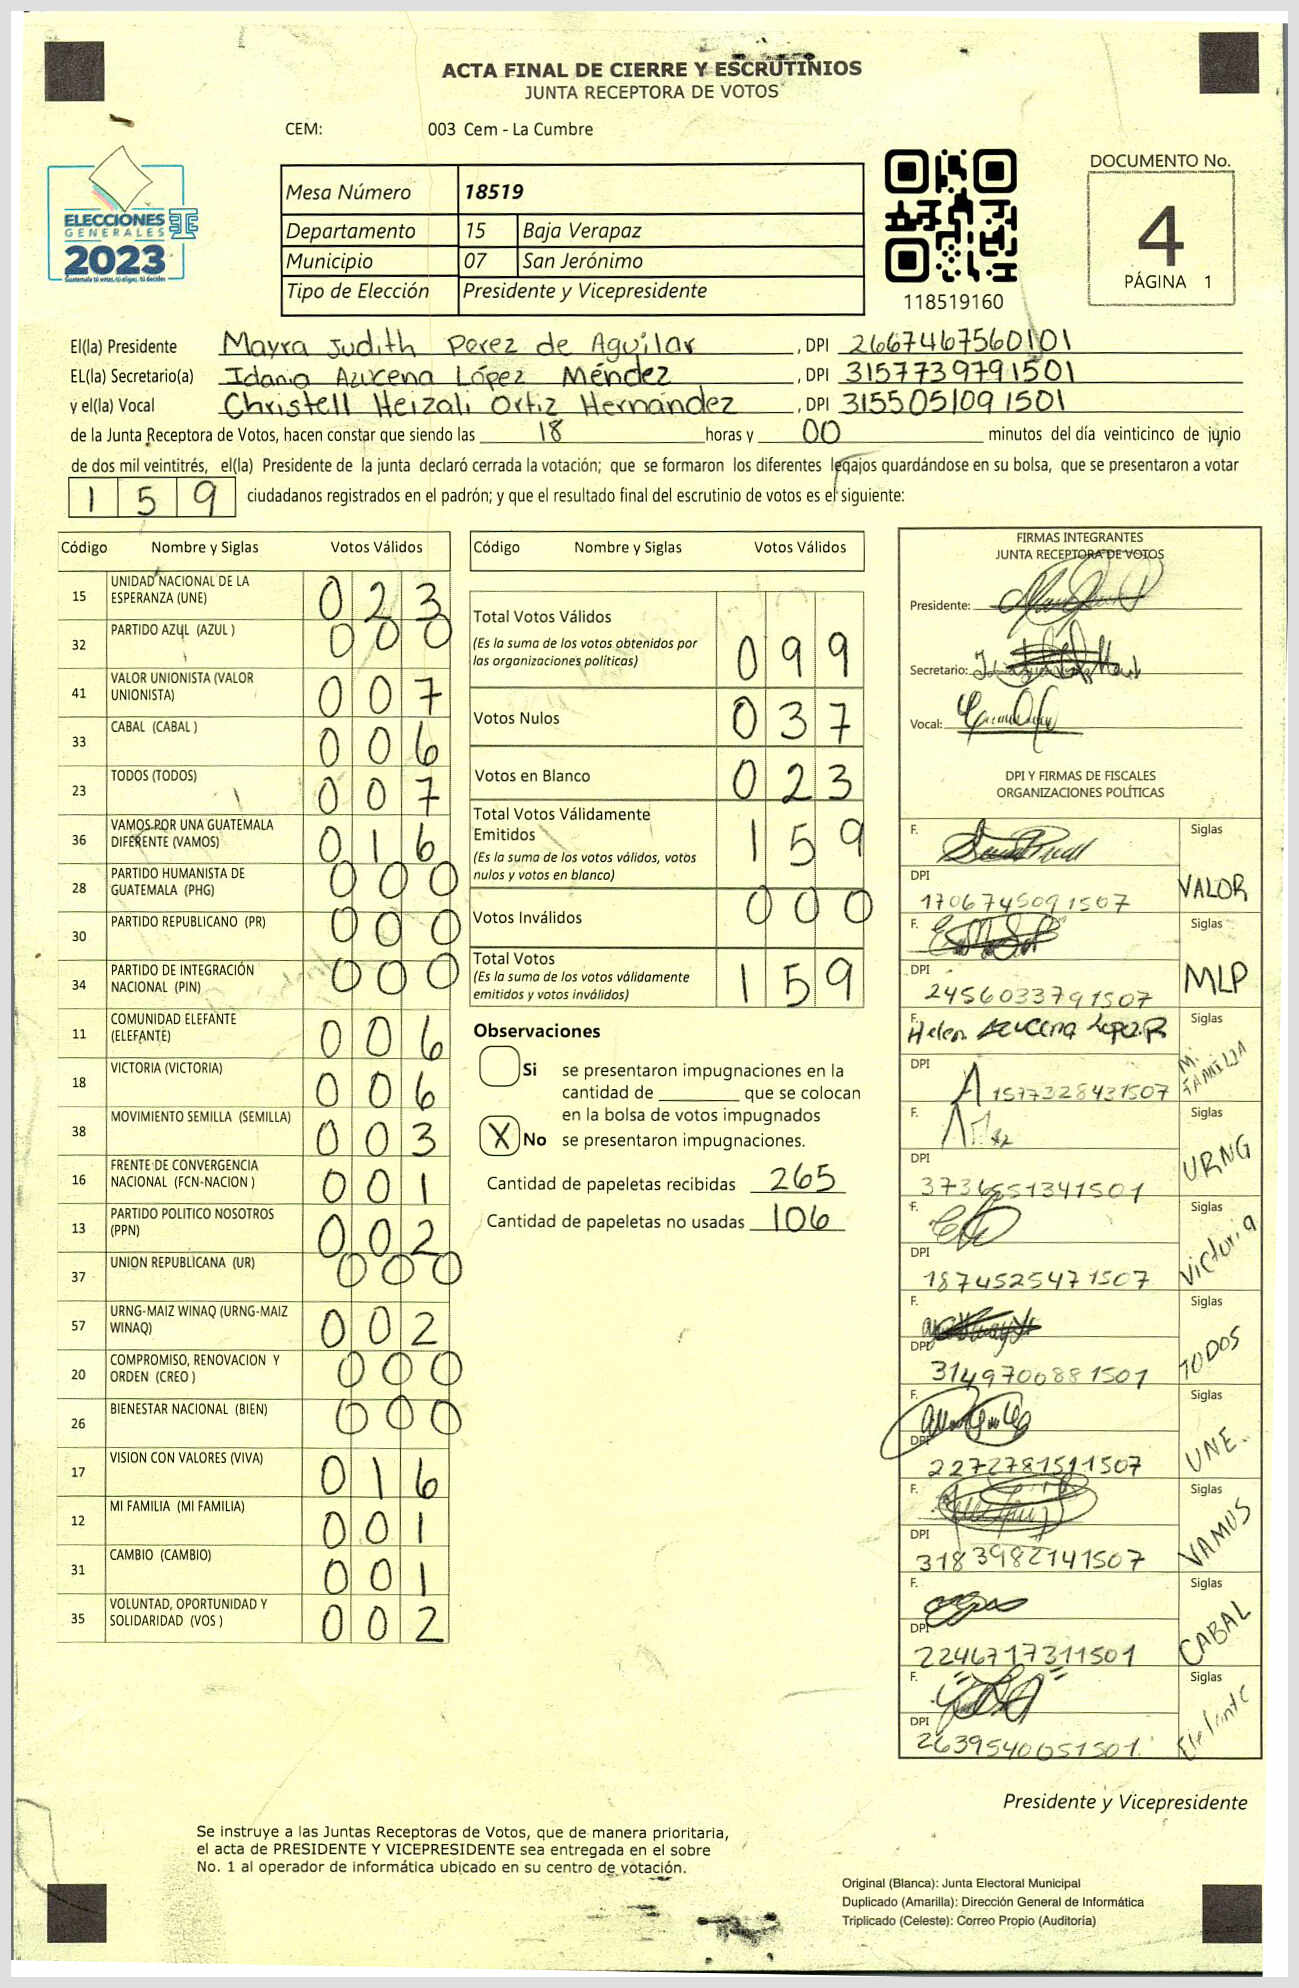 ACTA FINAL DE CIERRE Y ESCRUTINIOS
JUNTA RECEPTORA DE VOTOS
CEM: 003 Cem - La Cumbre
ELECCIONES
GENERALES
2023
Guatemala tú votas, tú eliges, tú decides
Mesa Número 18519
Departamento 15 Baja Verapaz
Municipio 07 San Jerónimo
Tipo de Elección Presidente y Vicepresidente
118519160
DOCUMENTO No.
4
PÁGINA 1
El(la) Presidente Mayra Judith Perez de Aguilar, DPI 2667467560101
EL(la) Secretario(a) Idania Azucena López Méndez, DPI 3157739791501
y el(la) Vocal Christell Heizali Ortiz Hernández, DPI 3155051091501
de la Junta Receptora de Votos, hacen constar que siendo las 18 horas y 00 minutos del día veinticinco de junio
de dos mil veintitrés, el(la) Presidente de la junta declaró cerrada la votación; que se formaron los diferentes legajos guardándose en su bolsa, que se presentaron a votar
159 ciudadanos registrados en el padrón; y que el resultado final del escrutinio de votos es el siguiente:
Código Nombre y Siglas Votos Válidos
15 UNIDAD NACIONAL DE LA ESPERANZA (UNE) 023
32 PARTIDO AZUL (AZUL ) 000
41 VALOR UNIONISTA (VALOR UNIONISTA) 007
33 CABAL (CABAL ) 006
23 TODOS (TODOS) 007
36 VAMOS POR UNA GUATEMALA DIFERENTE (VAMOS) 016
28 PARTIDO HUMANISTA DE GUATEMALA (PHG) 000
30 PARTIDO REPUBLICANO (PR) 000
34 PARTIDO DE INTEGRACIÓN NACIONAL (PIN) 000
11 COMUNIDAD ELEFANTE (ELEFANTE) 006
18 VICTORIA (VICTORIA) 006
38 MOVIMIENTO SEMILLA (SEMILLA) 003
16 FRENTE DE CONVERGENCIA NACIONAL (FCN-NACION ) 001
13 PARTIDO POLITICO NOSOTROS (PPN) 002
37 UNION REPUBLICANA (UR) 000
57 URNG-MAIZ WINAQ (URNG-MAIZ WINAQ) 002
20 COMPROMISO, RENOVACION Y ORDEN (CREO ) 000
26 BIENESTAR NACIONAL (BIEN) 000
17 VISION CON VALORES (VIVA) 016
12 MI FAMILIA (MI FAMILIA) 001
31 CAMBIO (CAMBIO) 001
35 VOLUNTAD, OPORTUNIDAD Y SOLIDARIDAD (VOS ) 002
Código Nombre y Siglas Votos Válidos
Total Votos Válidos 099
(Es la suma de los votos obtenidos por
las organizaciones políticas)
Votos Nulos 037
Votos en Blanco 023
Total Votos Válidamente
Emitidos 159
(Es la suma de los votos válidos, votos
nulos y votos en blanco)
Votos Inválidos 000
Total Votos 159
(Es la suma de los votos válidamente
emitidos y votos inválidos)
Observaciones
Si se presentaron impugnaciones en la
cantidad de ________ que se colocan
en la bolsa de votos impugnados
X No se presentaron impugnaciones.
Cantidad de papeletas recibidas 265
Cantidad de papeletas no usadas 106
FIRMAS INTEGRANTES
JUNTA RECEPTORA DE VOTOS
Presidente:
Secretario:
Vocal:
DPI Y FIRMAS DE FISCALES
ORGANIZACIONES POLÍTICAS
F. Siglas
DPI 1706745091507 VALOR
F. Siglas
DPI 2456033791507 MLP
F. Helen Azucena Lopez.R Siglas
DPI 1577328431507 M. FAMILIA
F. Siglas
DPI 3736551341501 URNG
F. Siglas
DPI 1874525471507 Victoria
F. Siglas
DPI 3149700881501 TODOS
F. Siglas
DPI 2272781511507 UNE.
F. Siglas
DPI 3183982141507 VAMOS
F. Siglas
DPI 2246717311501 CABAL
F. Siglas
DPI 2639540051501. Elefante
Presidente y Vicepresidente
Se instruye a las Juntas Receptoras de Votos, que de manera prioritaria,
el acta de PRESIDENTE Y VICEPRESIDENTE sea entregada en el sobre
No. 1 al operador de informática ubicado en su centro de votación.
Original (Blanca): Junta Electoral Municipal
Duplicado (Amarilla): Dirección General de Informática
Triplicado (Celeste): Correo Propio (Auditoría)